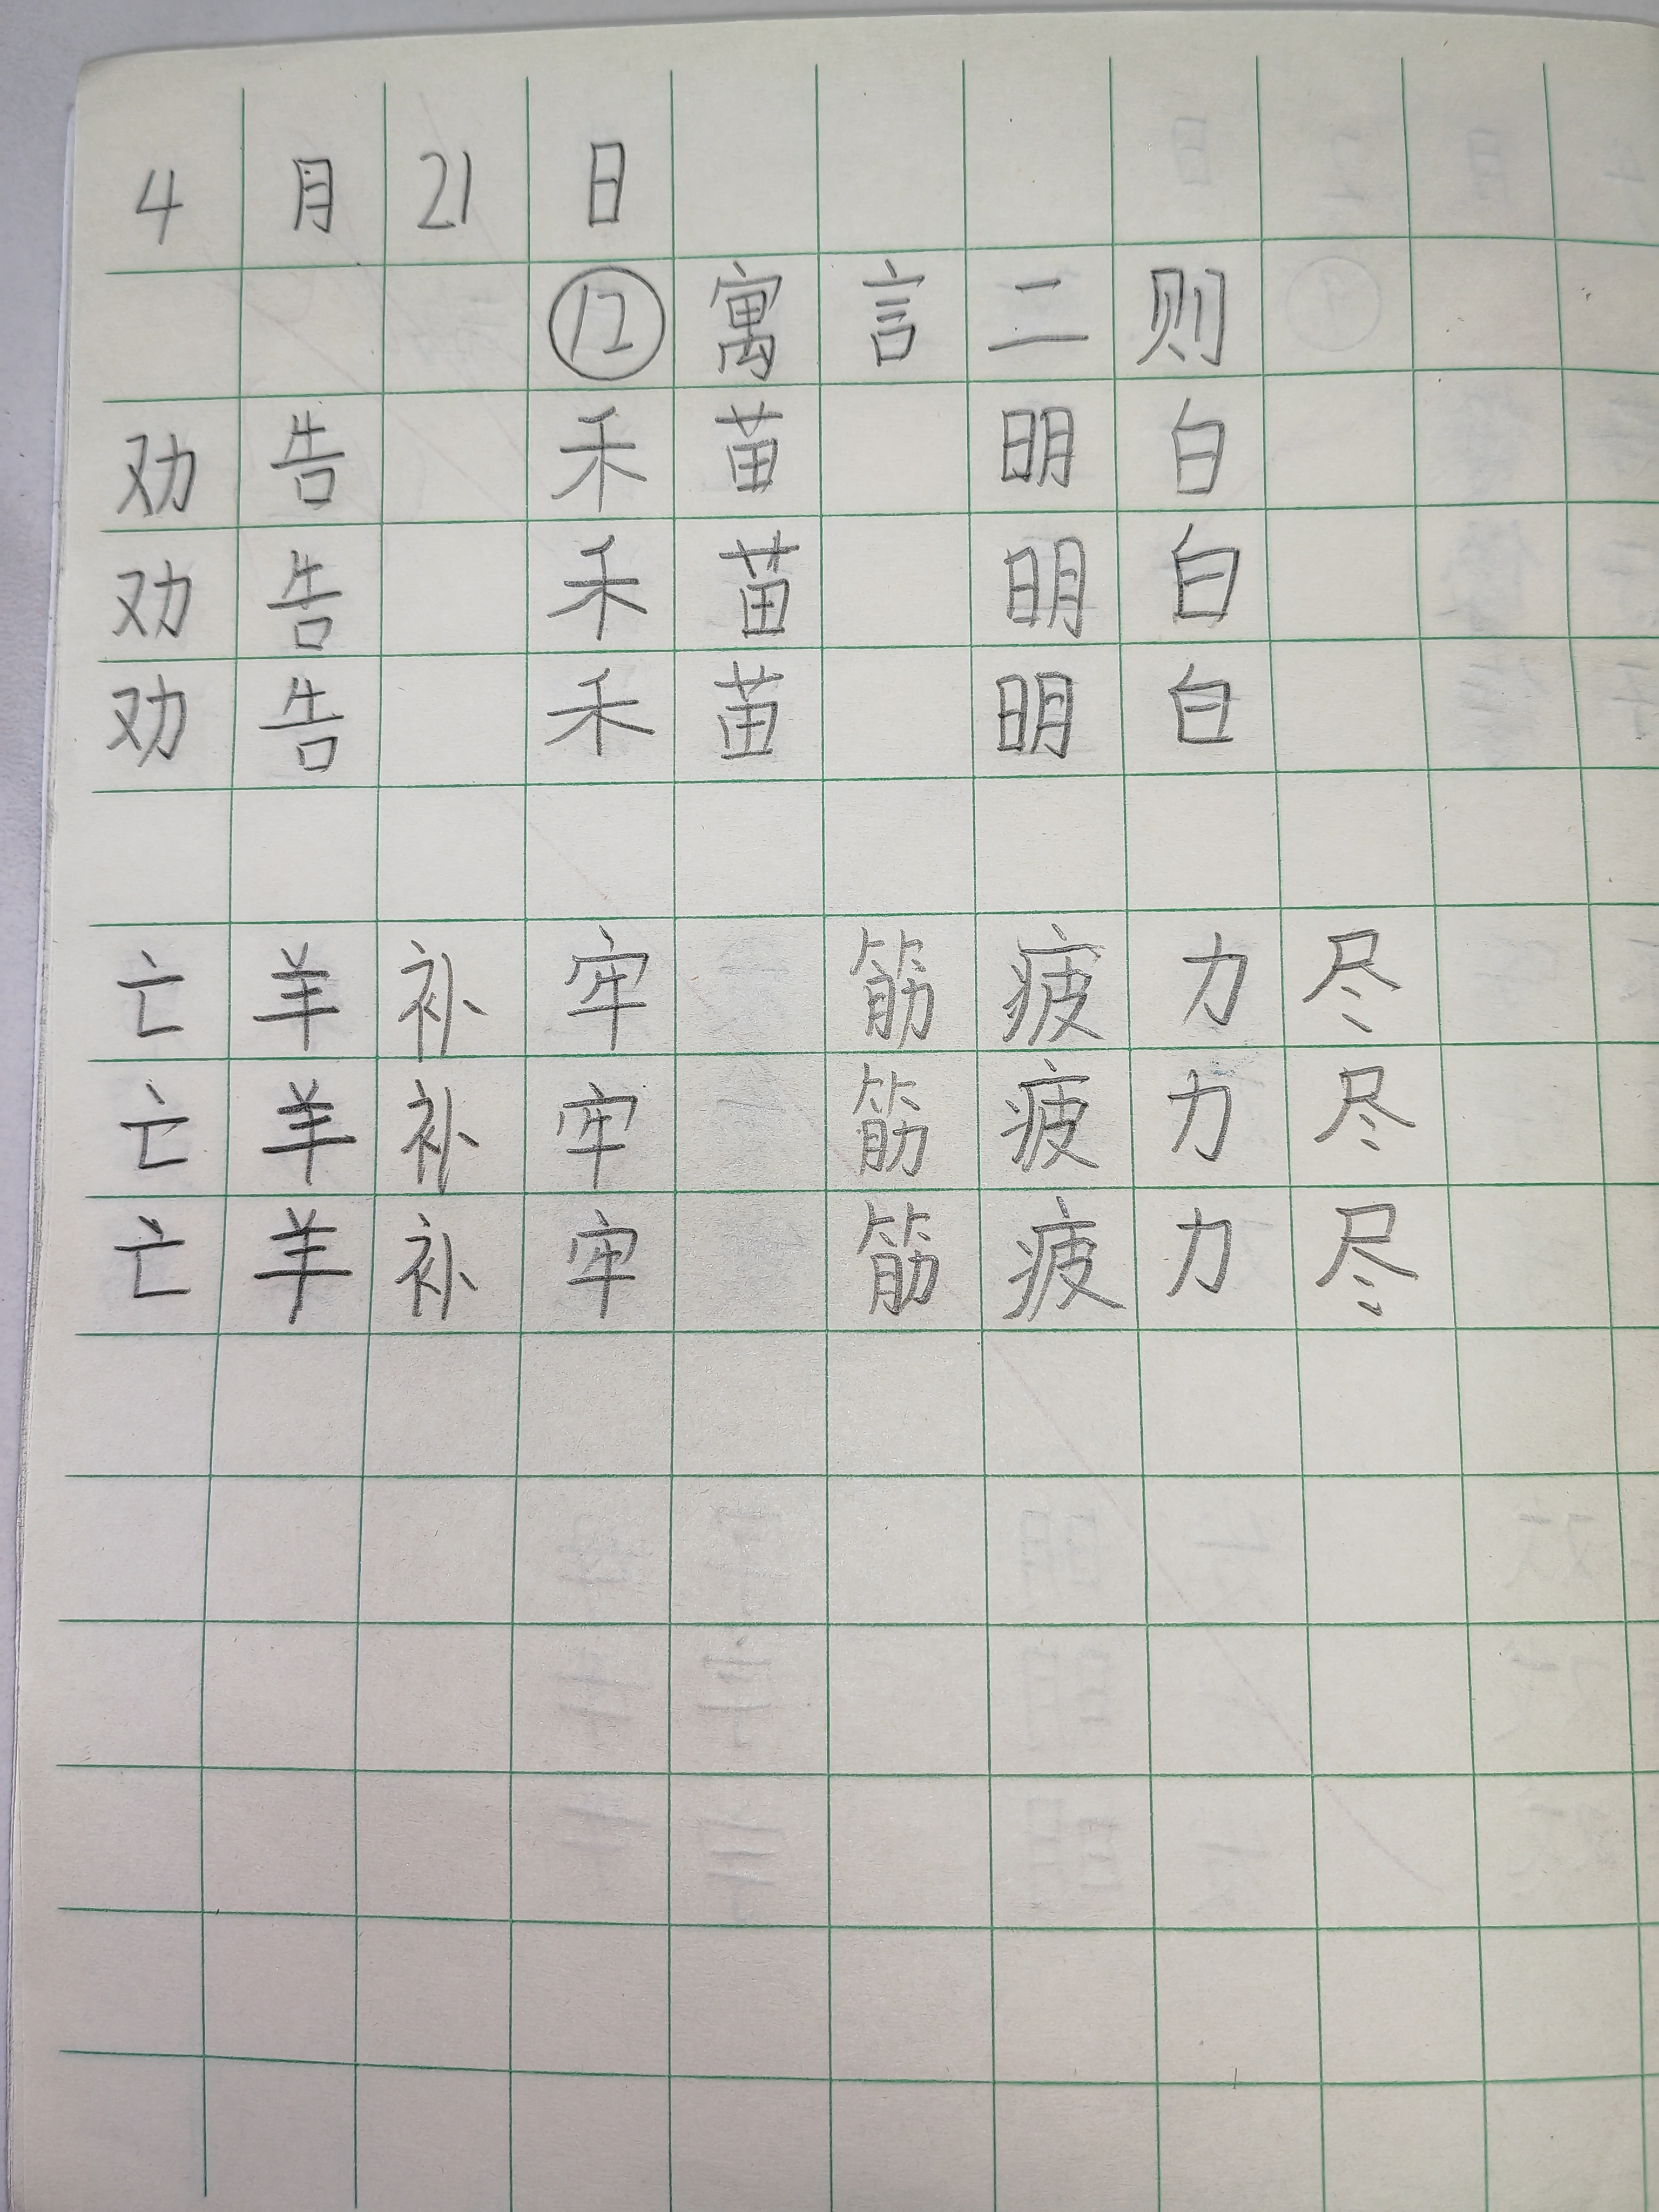 4月21日
⑫寓言二则
劝告 禾苗 明白
劝告 禾苗 明白
劝告 禾苗 明白
亡羊补牢 筋疲力尽
亡羊补牢 筋疲力尽
亡羊补牢 筋疲力尽